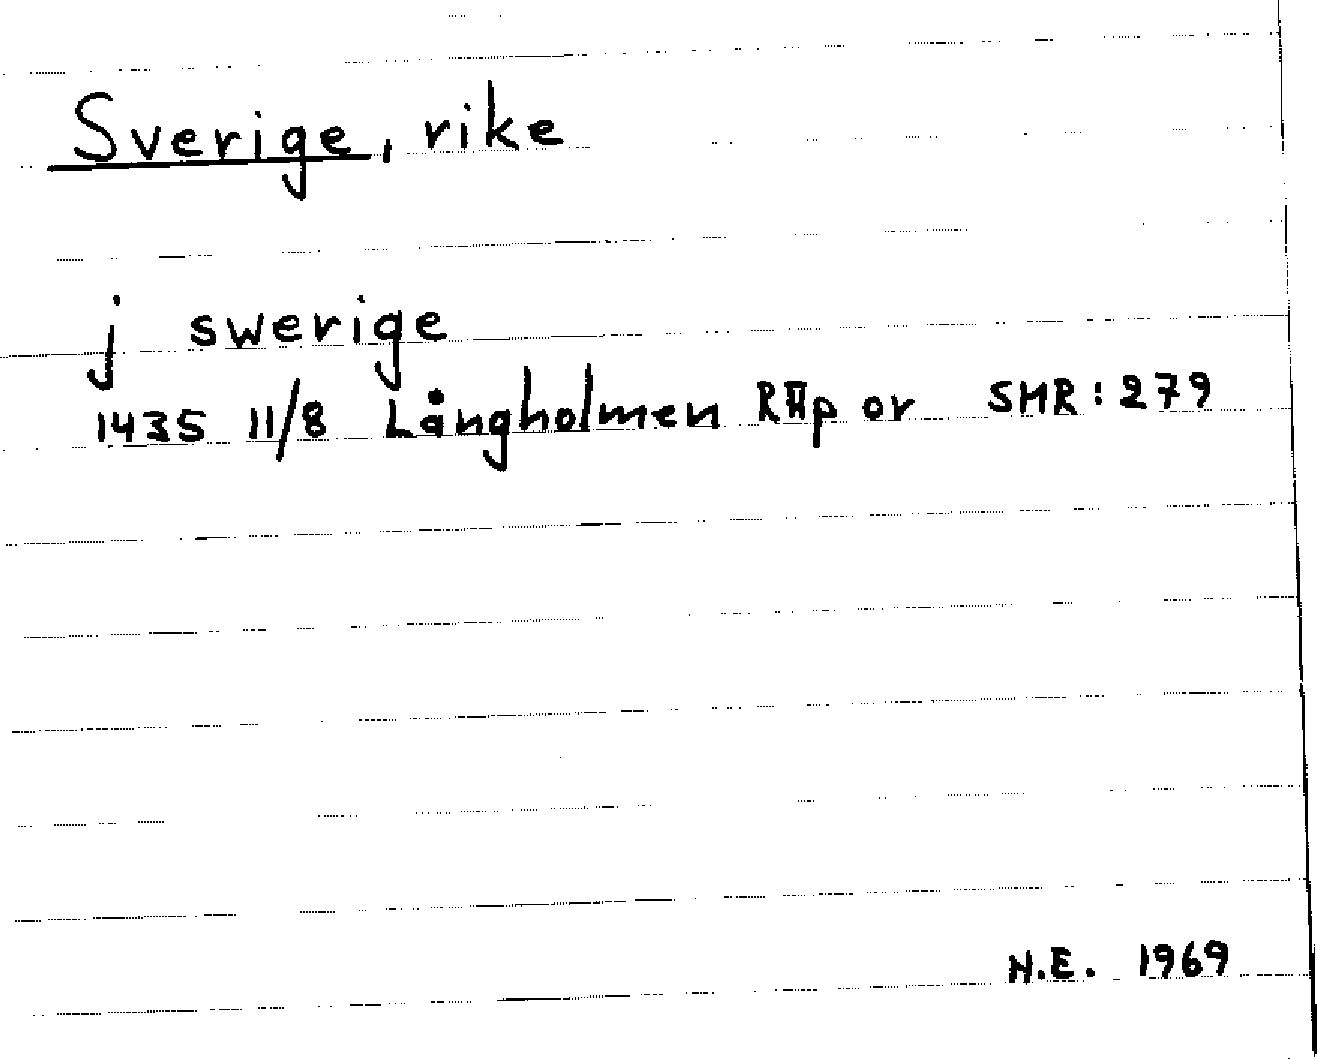 Sverige, rike
j swerige
1435 11/8 Långholmen RAp or SMR: 279
N.E. 1969